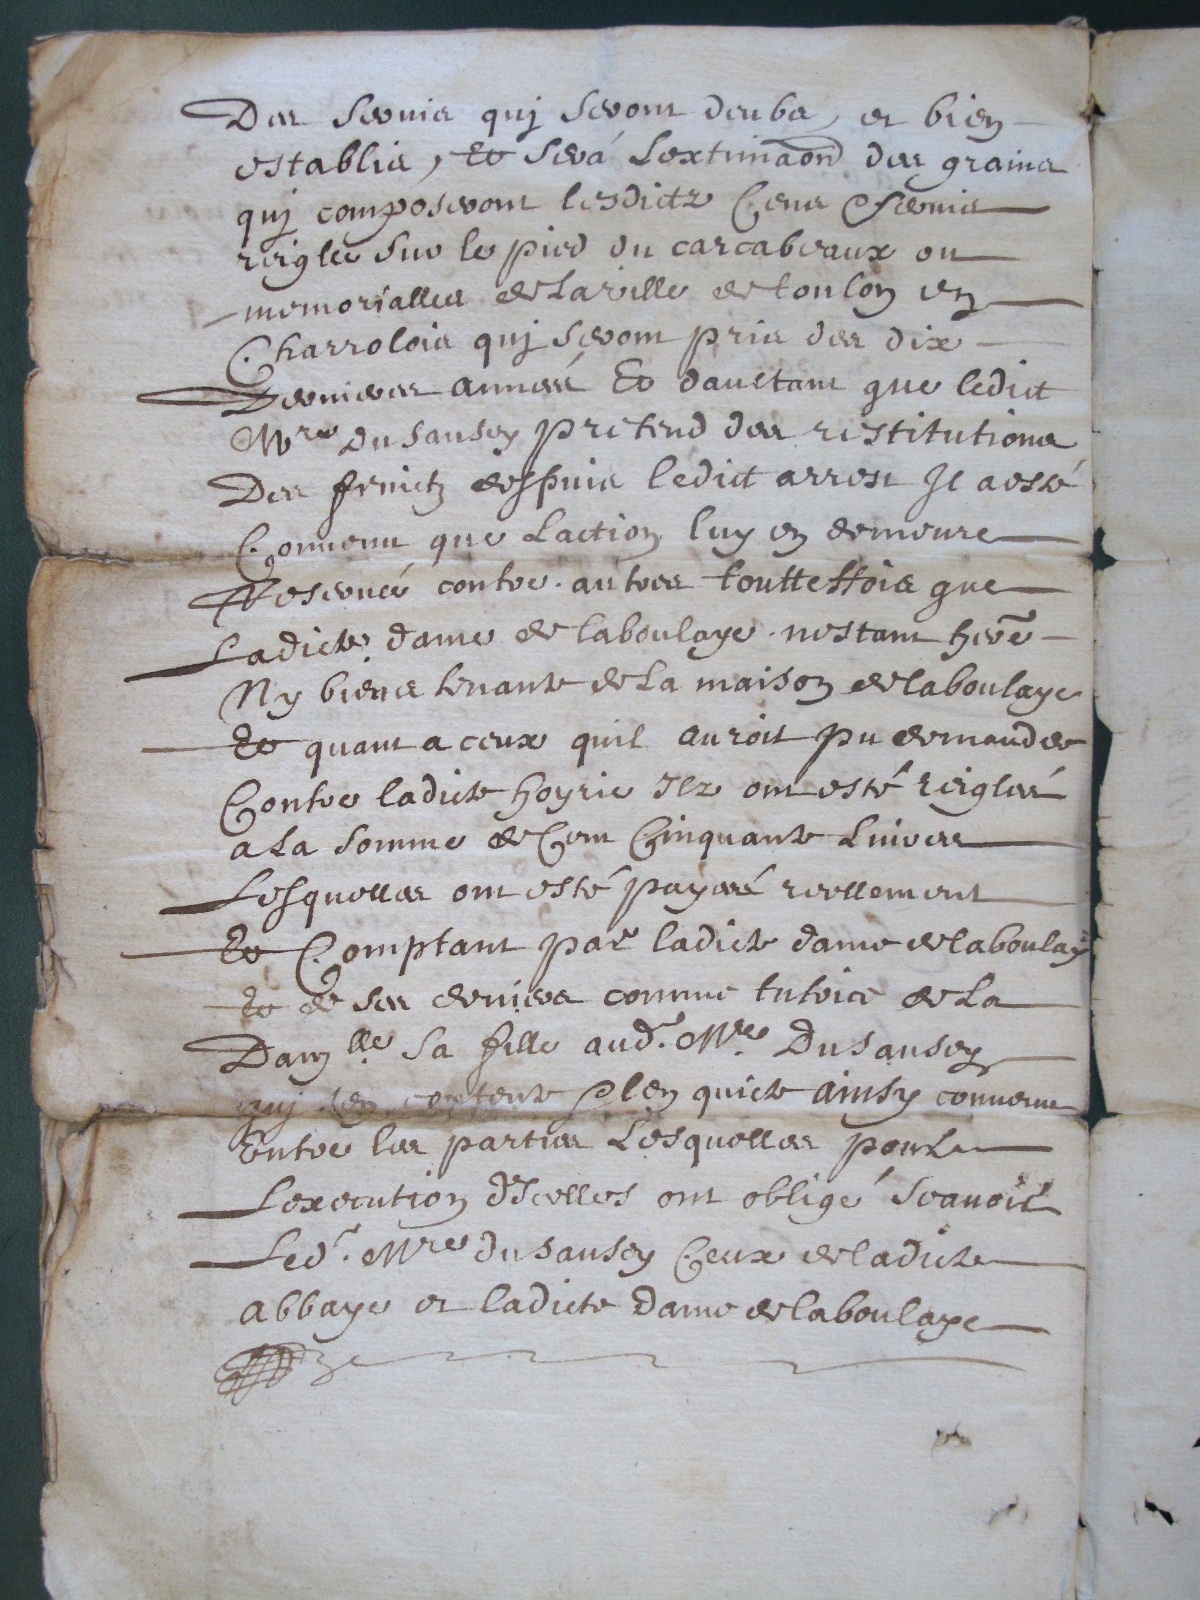 Des servis quj seront deubs, et bien
establis, Et sera Lextimaon des grains
quj composeront lesdictz Cens Servis
reigleé sur le pied du carcabeaux ou
memorialles de La ville de toulon en
Charrolois quj seront pris des dix
Dernieres anneés Et daultant que ledict
Mre du sausey pretend des restitutions
Des fruictz despuis ledict arrest Il a esté
Convenu que Laction luy en demeure
Reservé contre autres touttesfois que
Ladicte dame de laboulaye nestant here
Ny biens tenante de La maison de laboulaye
Et quant a ceux quil auroit pu demander
Contre ladicte hoyrie Ilz ont esté reiglés
a La somme de Cent Cinquante Livres
Lesquelles ont esté payeés reellement
Et Comptant par ladicte dame de laboulaye
Et de ses deniers comme tutrice de La
Damlle sa fille aud. Mre. Du sausey
quj sen contente len quicte ainsy convenu
Entre les parties Lesquelles pour
Lexecution dIcelles ont obligé scavoir
Led. Mre du sausey Ceux de ladicte
abbaye et ladicte dame de laboulaye